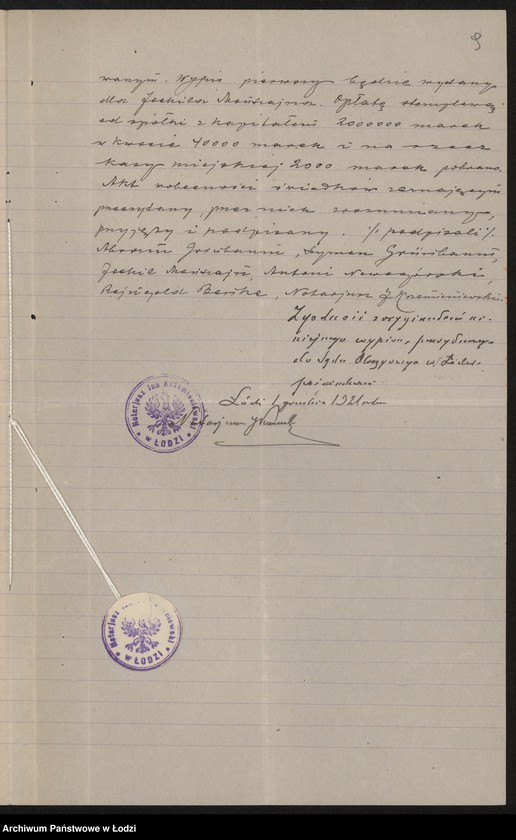 9
wanym. Wypis pierwszy będzie wydany
dla Jechila Mońszajna. Opłatę stemplową
od spółki z kapitałem 2000000 marek
w kwocie 40000 marek i na rzecz
kasy miejskiej 2000 marek pobrano.
Akt w obecności świadków zeznającym
przeczytany, przez nich zrozumiany,
przyjęty i podpisany. /:podpisali:/
Abram Grünbaum, Szymon Grünbaum,
Jechil , Antoni Nowogórski,
Rajngold Beske, Notarjusz J Krzemieniewski.
Zgodność z oryginałem ni-
niejszego wypisu, 
do Sądu Okręgowego w Łodzi
poświadczam
Łódź 1 grudnia 1921 roku
Notarjusz
Notarjusz Jan Krzemieniewski
w ŁODZI
Notarjusz
w ŁODZI
Archiwum Państwowe w Łodzi